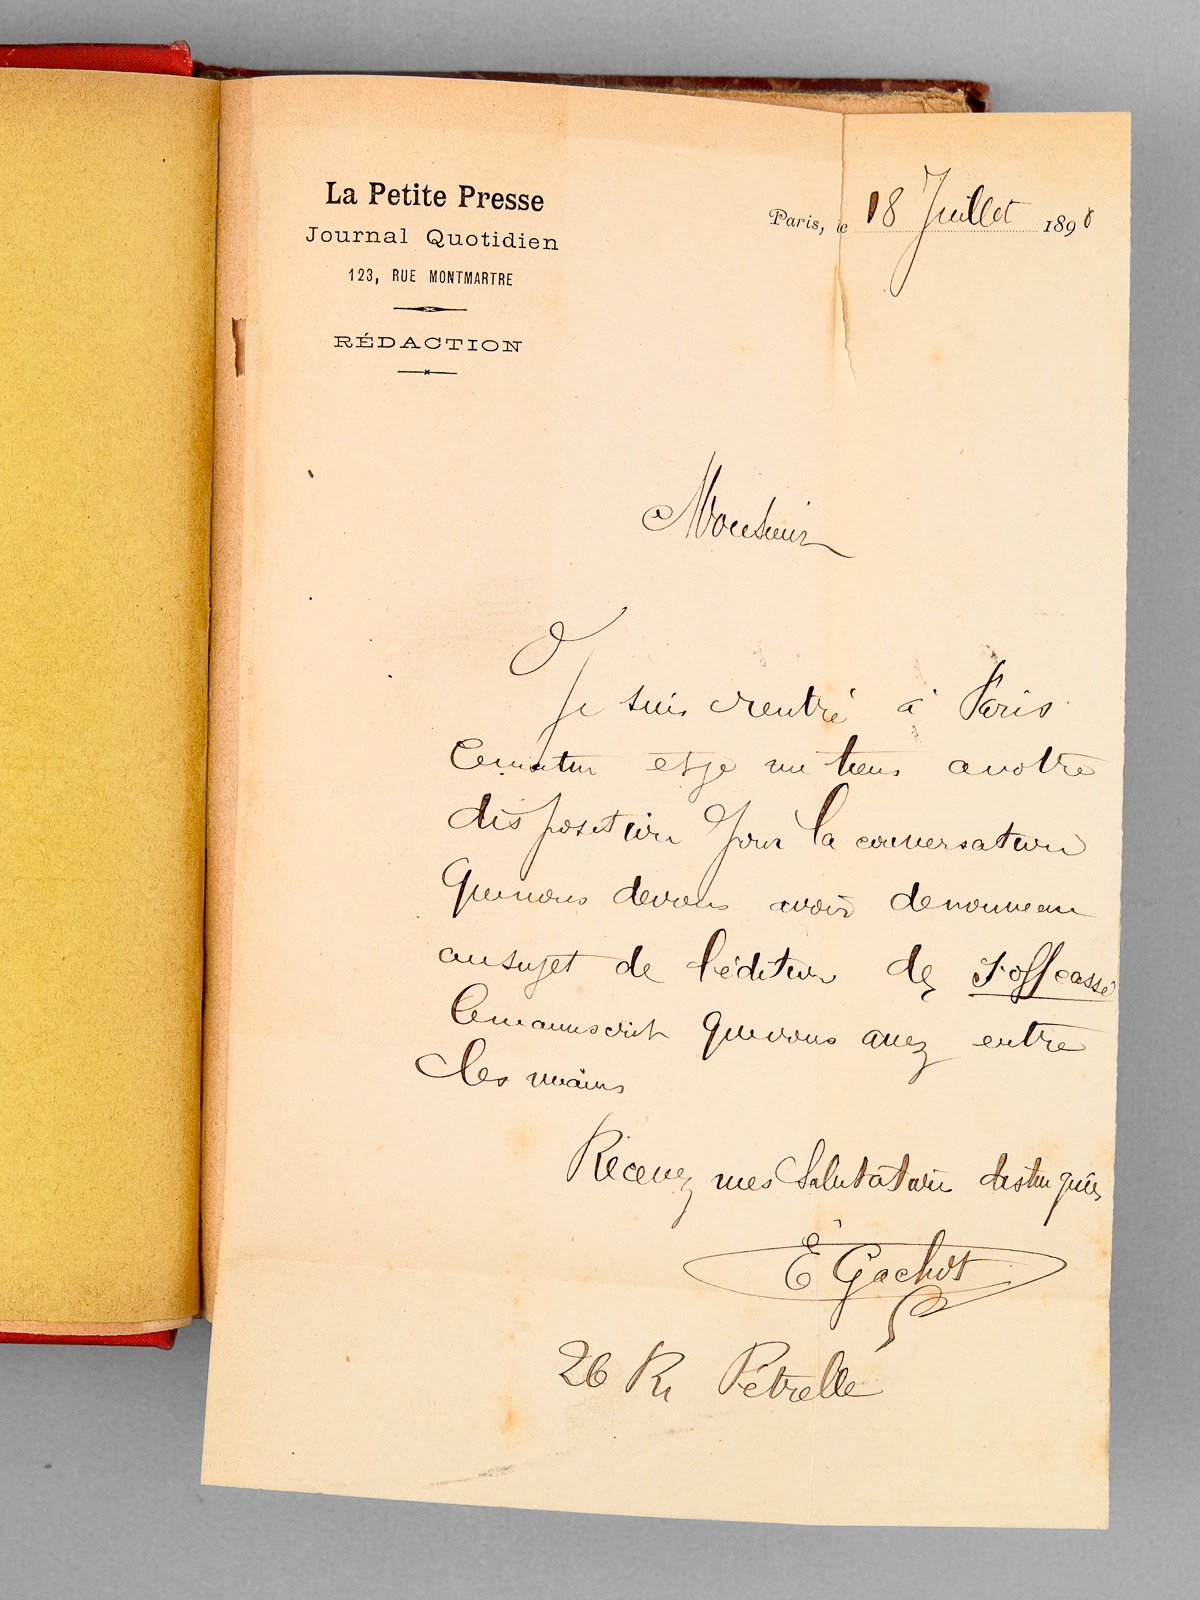 La Petite Presse
Journal Quotidien
123, RUE MONTMARTRE
RÉDACTION
Paris, le 18 Juillet 1890
Monsieur
Je suis rentré à Paris
ce matin et je me tiens a votre
disposition pour la conversation
que nous devons avoir de nouveau
au sujet de l'éditeur de
le manuscrit que vous avez entre
les mains
Recevez mes Salutations distinguées
E Gachot
26 R. Pétrelle